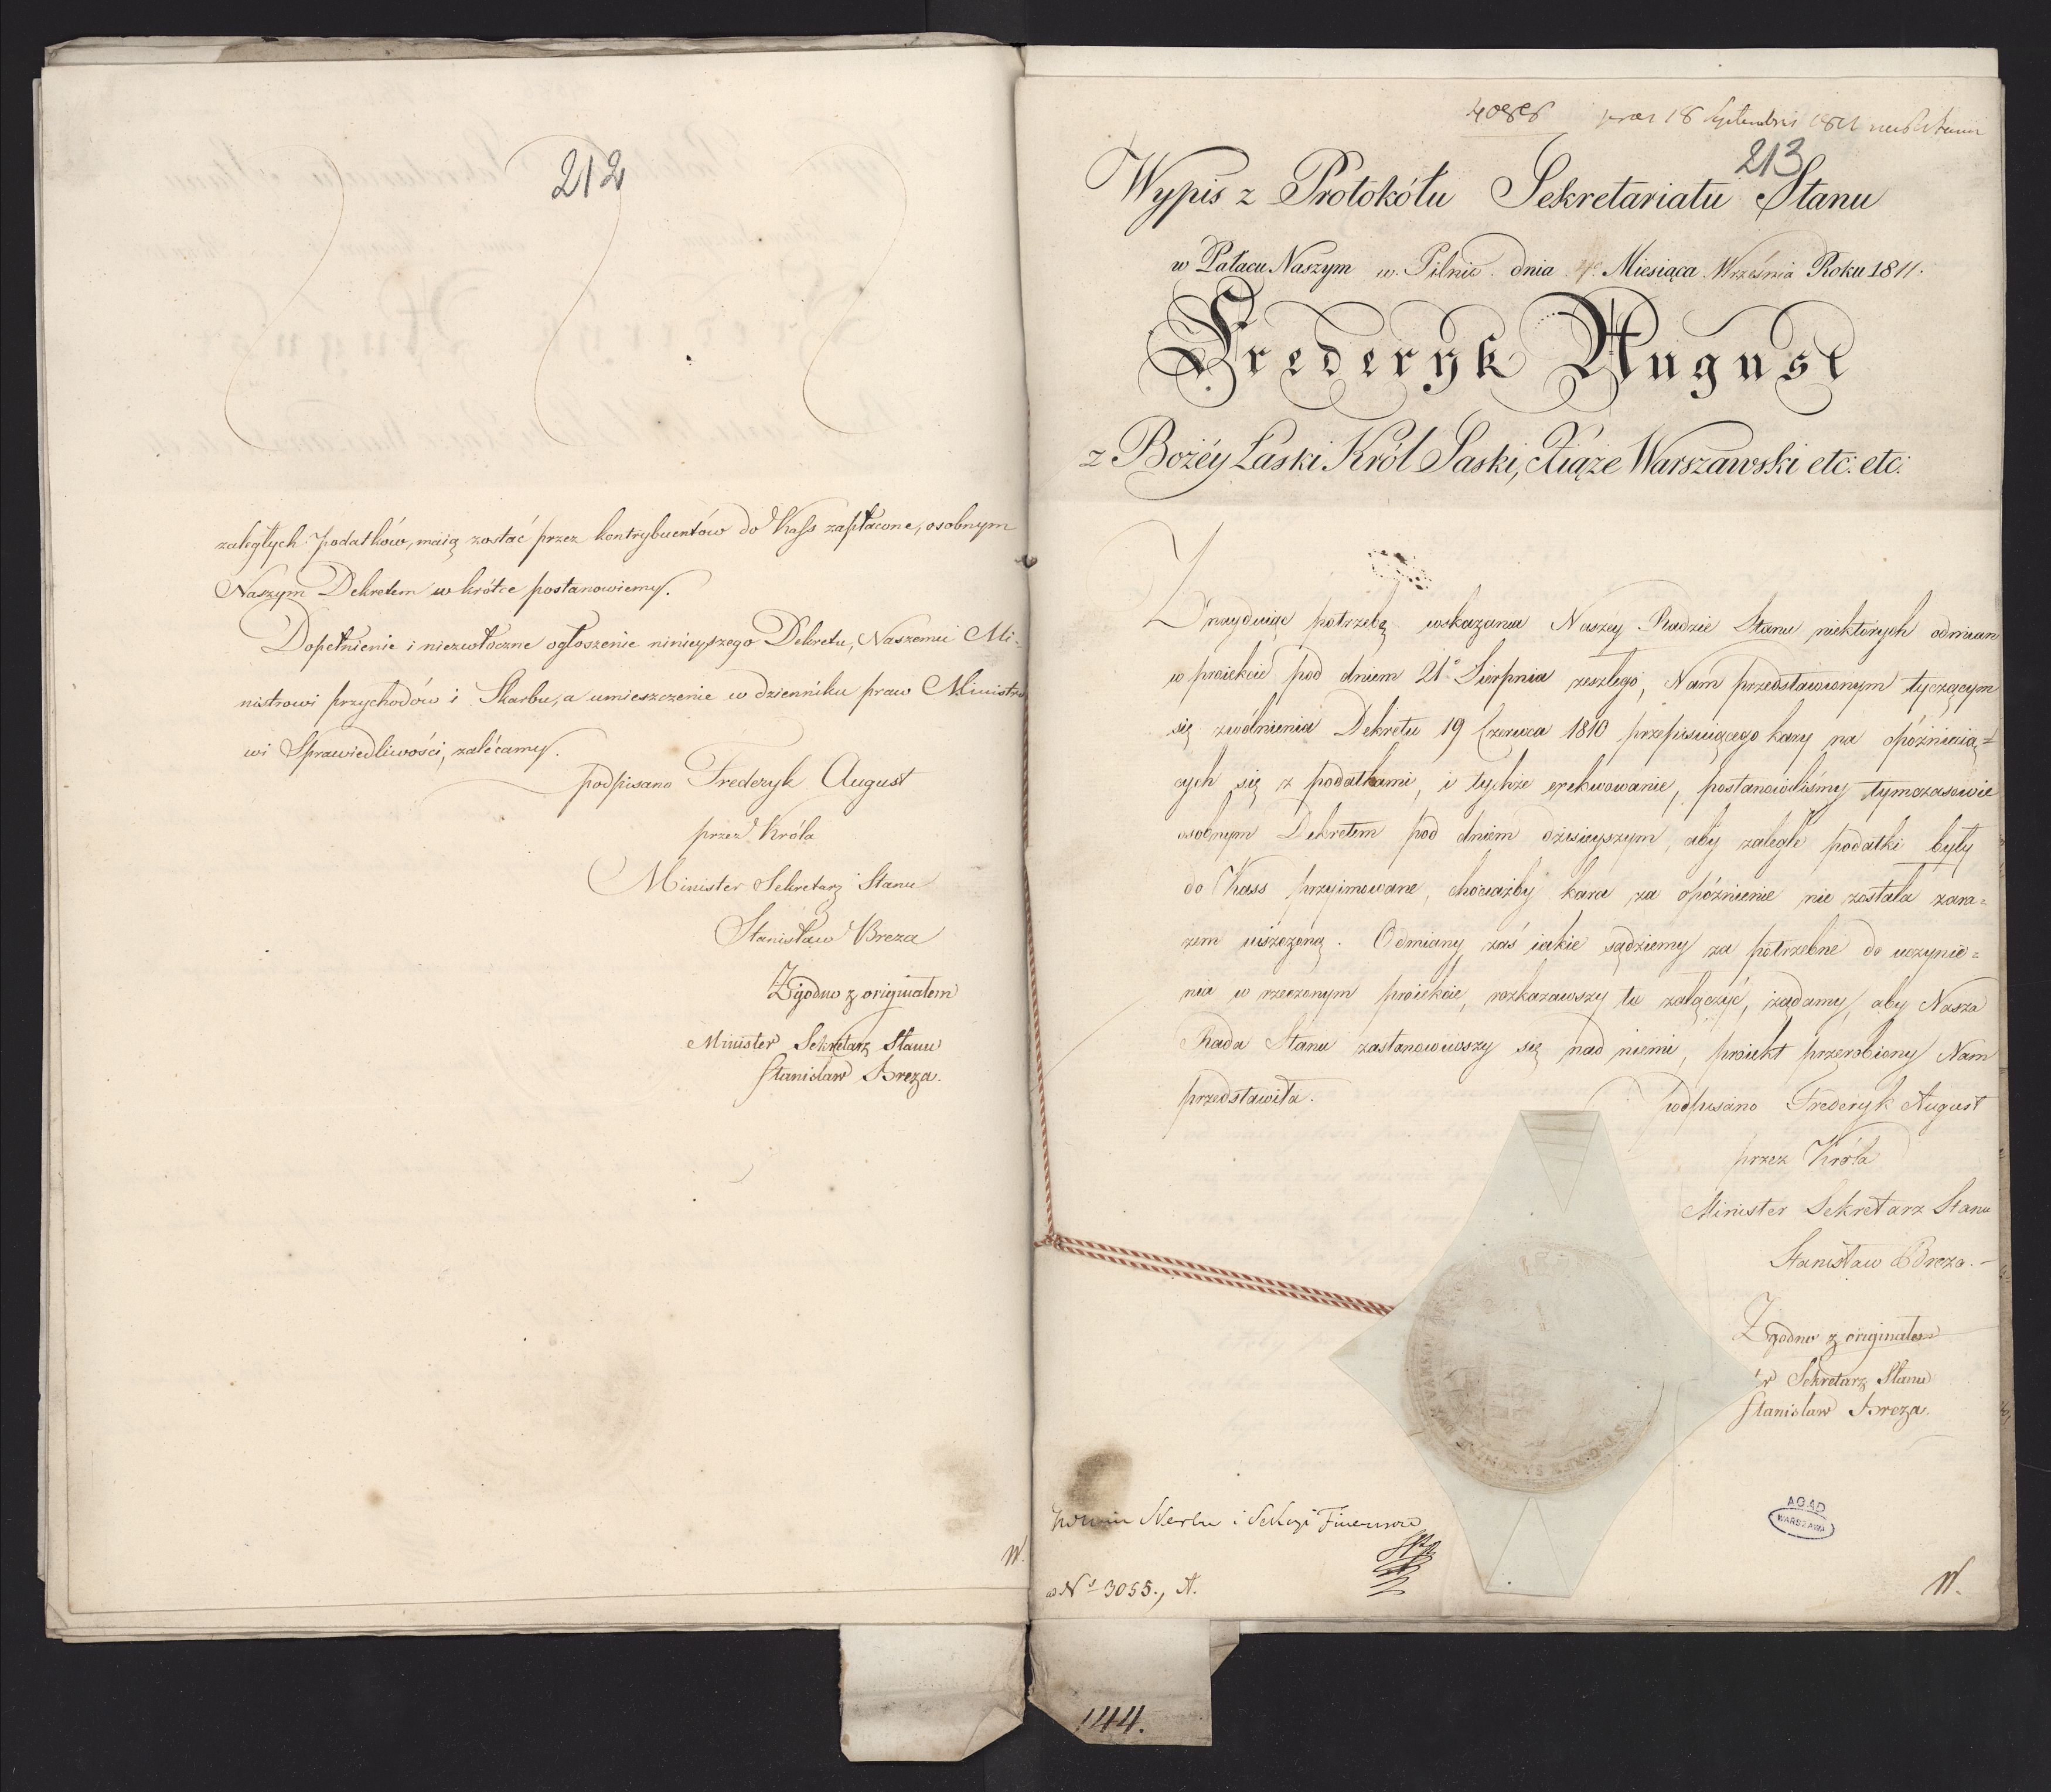 212
zaległych podatków, maią zostać przez kontrybuentów do Kass zapłacone, osobnym
Naszym Dekretem wkrótce postanowiemy.
Dopełnienie i niezwłoczne ogłoszenie ninieyszego Dekretu, Naszemu Mi-
nistrowi przychodów i Skarbu, a umieszczenie w dzienniku praw Ministro
wi Sprawiedliwości, zalécamy.
podpisano Frederyk August
przez Króla
Minister Sekretarz Stanu
Stanisław Breza
Zgodno z originałem
Minister Sekretarz Stanu
Stanisław Breza.
W.
18 Septembris 1811
213
Wypis z Protokółu Sekretariatu Stanu
w Pałacu Naszym w Pilnic dnia 4. Miesiąca Września Roku 1811.
Frederyk August
z Bożéy Łaski Król Saski, Xiąże Warszawski etc: etc:
Znayduiąc potrzebę wskazania Naszéy Radzie Stanu niektórych odmian
w proiekcie pod dniem 21º Sierpnia zeszłego, Nam przedstawionym tyczącym
się zwolnienia Dekretu 19 Czerwca 1810 przepisuiącego kary na opóźniaią=
cych się z podatkami, i tychże exekwowanie, postanowiliśmy tymczasowie
osobnym Dekretem pod dniem dzisieyszym, aby zaległe podatki były
do Kass przyimowane, chociażby kara za opóźnienie nie została zara=
zem uiszczoną. Odmiany zaś iakie sądziemy za potrzebne do uczynie=
nia w rzeczonym proiekcie, rozkazawszy tu załączyć, żądamy, aby Nasza
Rada Stanu zastanowiwszy się nad niemi, proiekt przerobiony Nam
przedstawiła.
podpisano Frederyk August
przez Króla
Minister Sekretarz Stanu
Stanisław Breza. –
Zgodno z originałem
r Sekretarz Stanu
Stanisław Breza.
i Sekcyi
ad Nº 3055., A.
AGAD
WARSZAWA
W.
144.